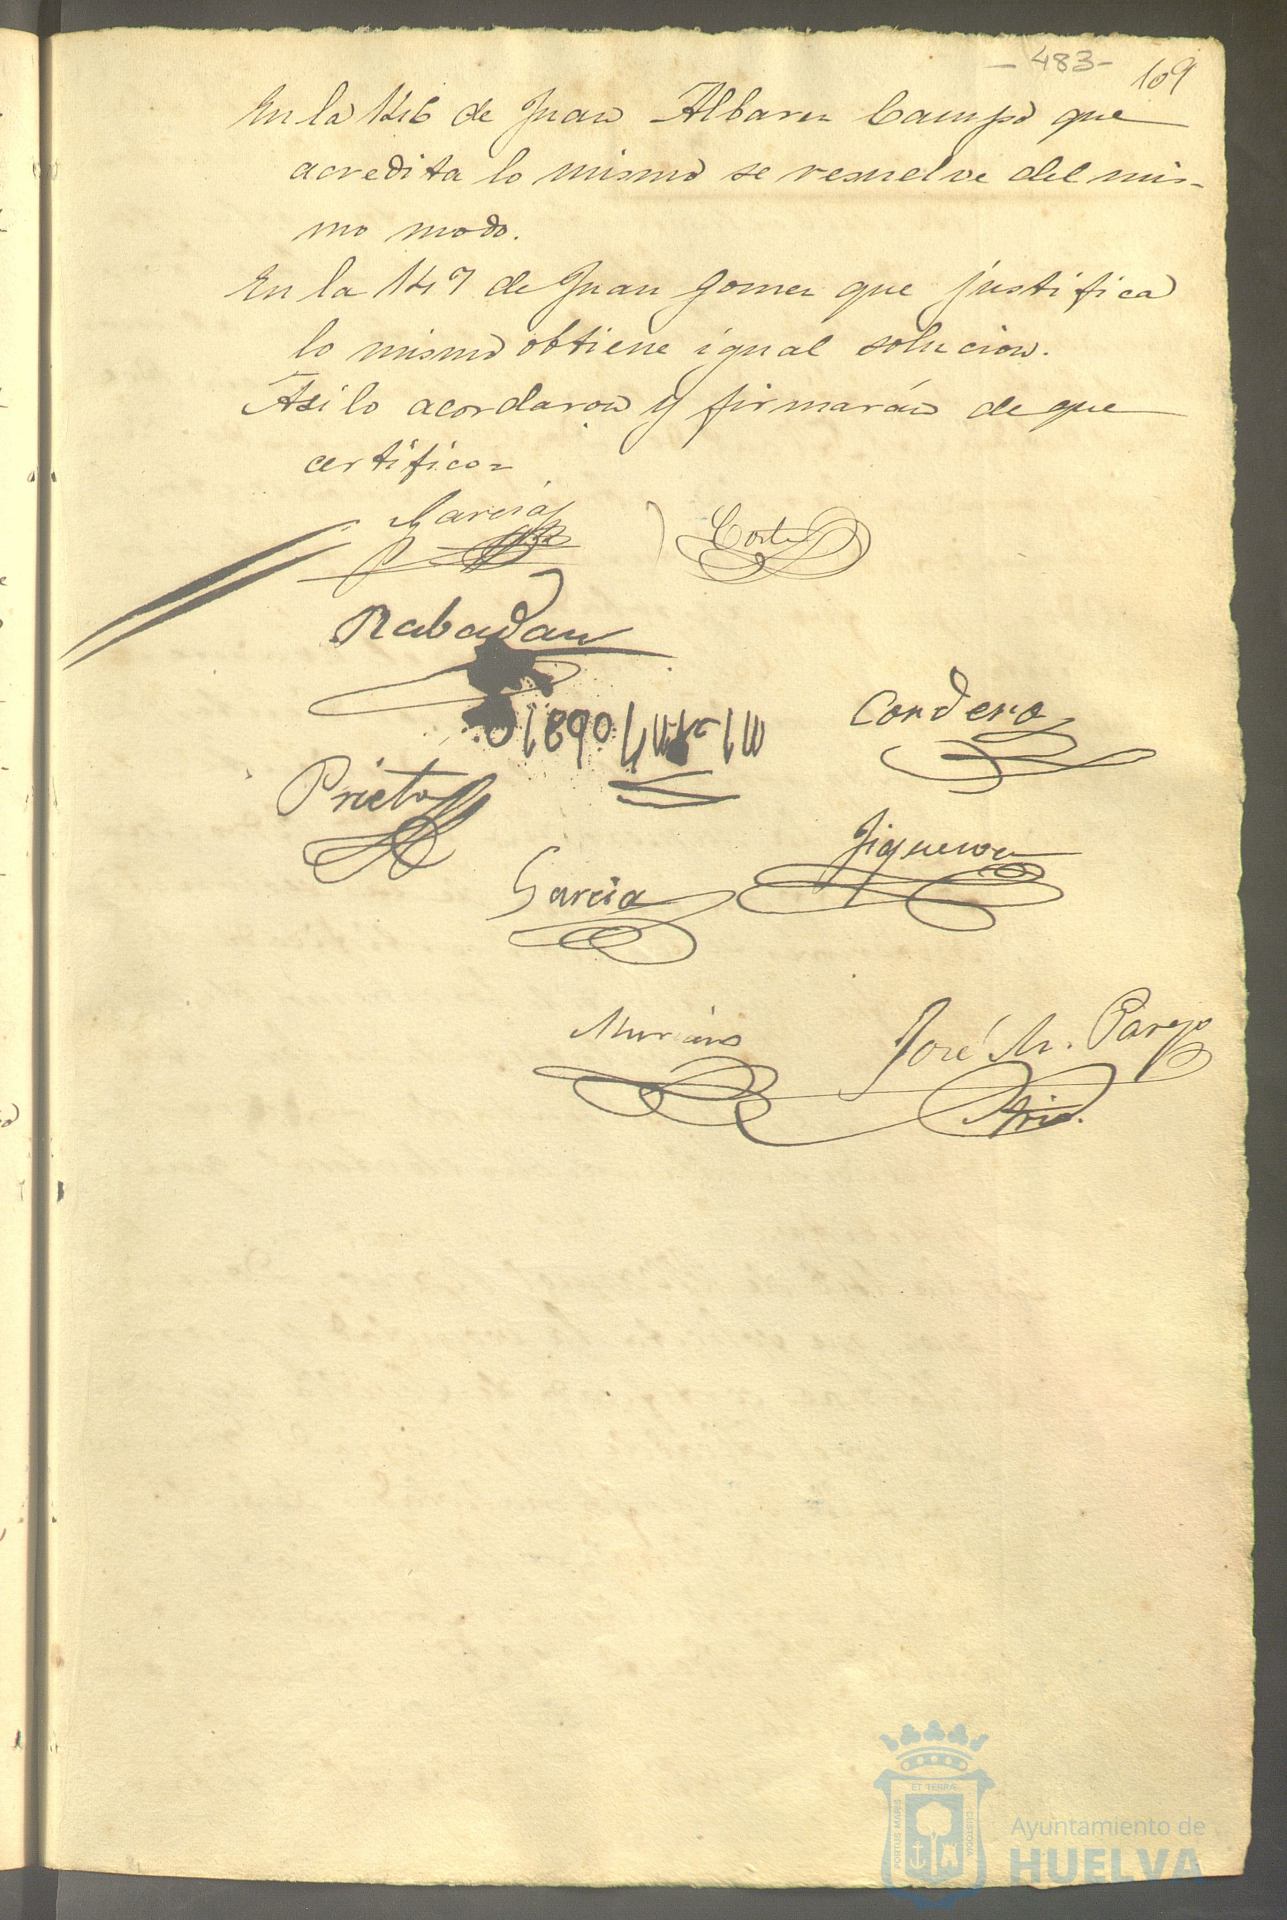 - 483 -
109
En la 146 de Juan Albarez Campo que
acredita lo mismo se resuelve del mis-
mo modo.
En la 147 de Juan Gomez que justifica
lo mismo obtiene igual solucion.
Asi lo acordaron y firmarán de que
certifico=
Garcia
Corte
Rabadan
Cordero
Prieto
Figueroa
Garcia
José M. Parejo
Srio.
PORTUS MARIS
ET TERRÆ
CUSTODIA
Ayuntamiento de
HUELVA